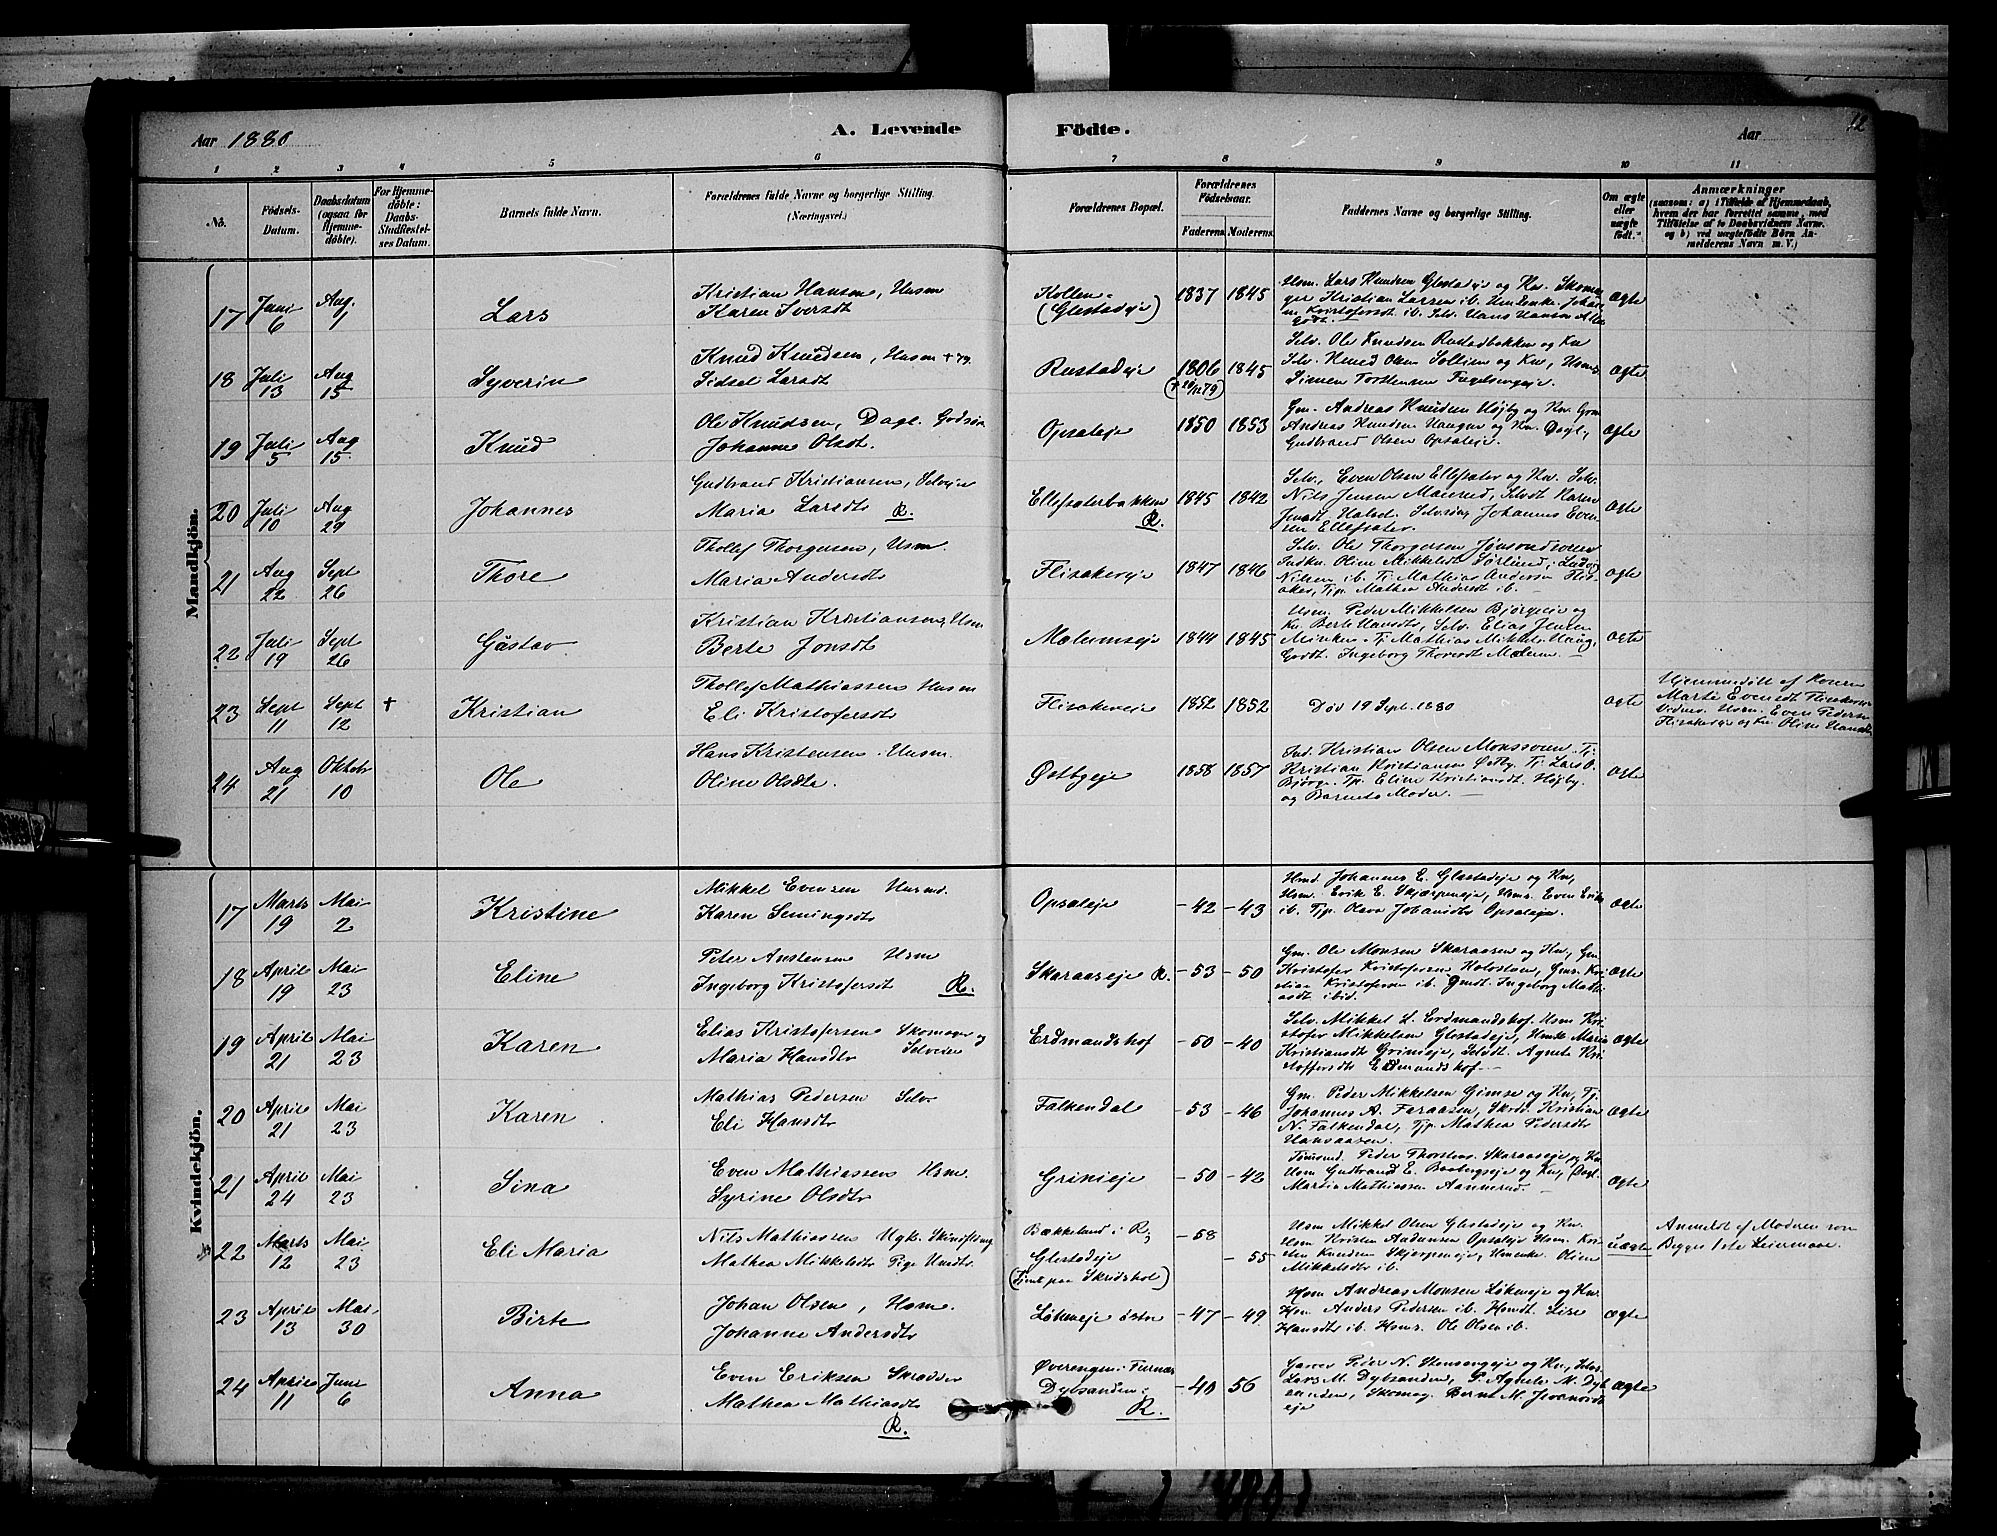 Aar 1880
A. Levende Födte.
Aar
12
1 2 3 4 5 6 7 8 9 10 11
No.
Födsels-
Datum.
Daabsdatum
(ogsaa for
Hjemme-
döbte).
For Hjemme-
döbte:
Daabs-
Stadfæstel-
ses Datum.
Barnets fulde Navn.
Forældrenes fulde Navne og borgerlige Stilling.
(Næringsvei.)
Forældrenes Bopæl.
Forældrenes
Födselsaar.
Faderens
Moderens
Faddernes Navne og borgerlige Stilling.
Om ægte
eller
uægte
födt.
Anmærkninger
(saasom: a) i Tilfælde af Hjemmedaab,
hvem der har forrettet samme, med
Tilföielse af to Daabsvidners Navne,
og b) ved uægtefödte Börn An-
melderens Navn m. V.)
Mandkjön.
17 Juni 6 Aug 1 Lars
Kristian Hansen, Husm
Karen Iversdt
Kollen
(Glestadeje)
1837 1845
Husm. Lars Knudsen Glestadeje og Kv. Skoma
ger Kristian Larsen ib.
Kristofersdt ib. Selv. Hans Hansen
ægte
18 Juli 13 Aug 15 Syverin
Knud Knudsen, Husm + 79
Sidsel Larsdt
Rustadeje
1806 1845
Selv. Ole Knudsen Rustadbakken og Kv
Selv. Knud Olsen Sollien og Kv, Husm
Simen Torstensen
ægte
19 Juli 5 Aug 15 Knud
Ole Knudsen, Dagl.
Johanne Olsdt.
Opsaleje
1850 1853
Gm. Andreas Knudsen Højby og Kv. Gm
Andreas Knudsen Haugen og Kv. Dagl,
Gudbrand Olsen Opsaleje.
ægte
20 Juli 10 Aug 29 Johannes
Gudbrand Kristiansen, Selvejer
Maria Larsdt R.
Ellefsæterbakken
R.
1845 1842
Selv, Even Olsen Ellefsæter og Kv. Selv.
Nils Jensen Maurud, Selvdt Karen
Jensdt Halsel. Selvsøn Johannes Even-
sen Ellefsæter.
ægte
21 Aug 22 Sept 26 Thore
Thollef Thorgersen, Husm.
Maria Andersdt
Flisakereje
1847 1846
Selv. Ole Thorgersen
Indkv. Oline Mikkelsdt Sørlund, Ludvig
Nilsen ib. Tj. Mathias Andersen Flis-
aker, Tjp. Mathea Andersdt ib.
ægte
22 Juli 19 Sept 26 Gustav
Kristian Kristiansen, Husm
Berte Jonsdt
Mælumseje
1844 1845
Husm. Peder Mikkelsen Bjørgeeje og
Kv. Berte Hansdt, Selv. Elias Jensen
Tj. Mathias Mikkels. Haug,
Gaardt. Ingeborg Thoresdt Mælum.
ægte
23 Sept 11 Sept 12 + Kristian
Thollef Mathiassen Husm
Eli Kristofersdt
Flisakereje
1852 1852
Død 19 Sept. 1880
ægte
Hjemmedøbt af Konen
Marte Evensdt Flisakereje
Vidner: Husm. Even Pedersen
Flisakereje og Kv. Oline Hansdt
24 Aug 21 Oktob 10 Ole
Hans Kristensen. Husm.
Oline Olsdt.
Østbyeje
1858 1857
Ind. Kristian Olsen Monssveen. Tj.
Kristian Kristiansen Østby. Tj. Lars O.
Bjørge. Tp. Eline Kristiansdt. Højby
og Barnets Moder.
ægte
Kvindekjön.
17 Marts 19 Mai 2 Kristine
Mikkel Evensen Husmd.
Karen Semingsdt
Opsaleje
- 42 - 43
Hmd. Johannes E. Glestadeje og Kv,
Husm. Erik E. Skjærpeneje, Husm. Even Eriks
ib. Tjp. Olava Johansdtr Opsaleje.
ægte
18 April 19 Mai 23 Eline
Peter Anstensen Husm
Ingeborg Kristofersdt R.
Skaraaseje R.
- 53 - 50
Gm. Ole Monsen Skaraasen og Kv, Gm.
Kristofer Kristofersen Holostuen, Gms. Kri-
stian Kristofersen ib. Gmdt. Ingeborg Mathi-
asdt ibid.
ægte
19 April 21 Mai 23 Karen
Elias Kristofersen Skomager og
Maria Hansdtr Selveier
Erdmandshof
- 50 - 40
Selv. Mikkel L. Erdmandshof. Husm Kri-
stofer Mikkelsen Glestadeje, Husk Maria
Kristiansdt Grinieje, Selvdt. Agnete Kri-
stoffersdtr Erdmandshof.
ægte
20 April 21 Mai 23 Karen
Mathias Pedersen Selv
Eli Hansdtr
Falkendal
- 53 - 46
Gm. Peder Mikkelsen Gimse og Kv, Tj.
Johannes A. Faraasen, Skrd. Kristian
N. Falkendal, Tjp. Mathea Pedersdtr
Hansaasen.
ægte
21 April 24 Mai 23 Sina
Even Mathiassen Hsm.
Syrine Olsdtr
Grinieje
- 50 - 42
Tømmd. Peder Thorstens. Skaraaseje og Kv
Husm Gudbrand E. Baabergseje og Kv,
Martin Mathiassen Aannerud.
ægte
22 Marts 12 Mai 23 Eli Maria
Nils Mathiassen Ugk.
Mathea Mikkelsdtr Pige Husdtr
Bækkelund i R;
Glestadeje
(Tjent paa Skridshol)
- 58
- 55
Husm Mikkel Olsen Glestadeje og Kv.
Husm Kristen Andersen Opsaleje Husm. Kri-
sten Knudsen Skjerpeneje, Husenke. Oline
Mikkelsdtr ib.
uægte
Anmeldt af Moderen som
Begges 1ste Leiermaal.
23 April 13 Mai 30 Birte
Johan Olsen, Husm.
Johanne Andersdtr
Løkeneje østre
- 47 - 49
Husm Andreas Monsen Løkeneje og Kv.
Hsm. Anders Pedersen ib. Hsmdt. Lise
Hansdtr ib. Hsms. Ole Olsen ib.
ægte
24 April 11 Juni 6 Anna
Even Eriksen Skrædder
Mathea Mathiasdtr
R.
Øverengen i Furnæs
Dybsanden i
R.
- 40 56
Peder N. Stensengeje og Kv, Selv.
Lars M. Dybsanden, P. Agnete M. Dyb
sanden, Skomag. Bernt M.
eje
ægte